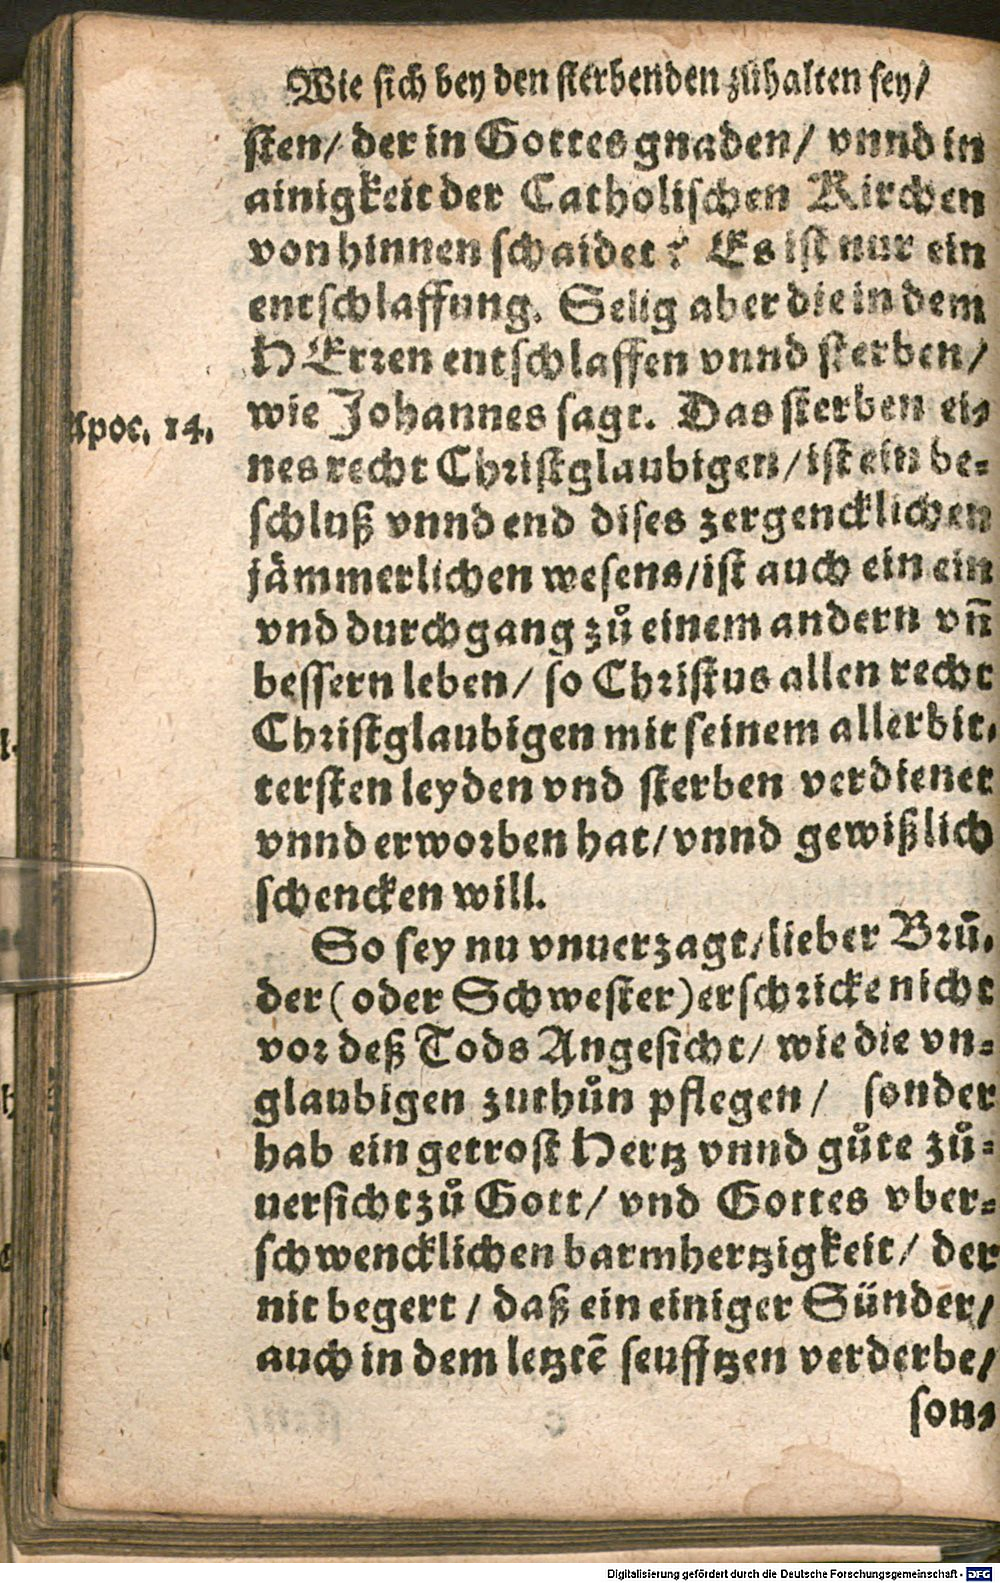 Wie sich bey den sterbenden zůhalten sey/
sten/ der in Gottes gnaden/ vnnd in
ainigkeit der Catholischen Kirchen
von hinnen schaidet? Es ist nur ein
entschlaffung. Selig aber die in dem
HErren entschlaffen vnnd sterben/
Apoc. 14.
wie Johannes sagt. Das sterben ei⸗
nes recht Christglaubigen/ ist ein be⸗
schluß vnnd end dises zergencklichen
jämmerlichen wesens/ ist auch ein ein
vnd durchgang zů einem andern vn̄
bessern leben/ so Christus allen recht
Christglaubigen mit seinem allerbit⸗
tersten leyden vnd sterben verdienet
vnnd erworben hat/ vnnd gewißlich
schencken will.
So sey nu vnuerzagt/ lieber Brů⸗
der (oder Schwester) erschricke nicht
vor deß Tods Angesicht/ wie die vn⸗
glaubigen zuthůn pflegen/ sonder
hab ein getrost Hertz vnnd gůte zů⸗
uersicht zů Gott/ vnd Gottes vber⸗
schwencklichen barmhertzigkeit/ der
nit begert/ daß ein einiger Sünder/
auch in dem letztē seufftzen verderbe/
son⸗
Digitalisierung gefördert durch die Deutsche Forschungsgemeinschaft - DFG